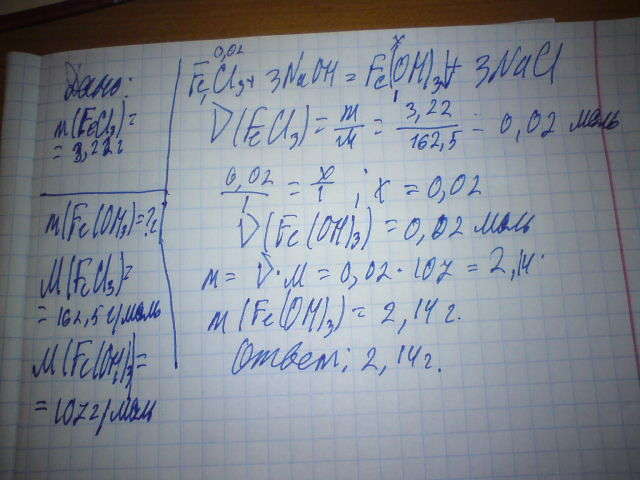 Дано:
m(FeCl3)=
= 3,22г
m(Fe(OH3)=?г
M(FeCl3)=
=162,5г/моль
M(Fe(OH)3)=
=107г/моль
0,02 x
FeCl3+ 3NaOH = Fe(OH)3↓+ 3NaCl
1 1
ν(FeCl3)= m/M = 3,22/162,5 = 0,02 моль
0,02/1 = x/1 ; x = 0,02
ν(Fe(OH)3) = 0,02 моль
m= ν·M = 0,02·107 = 2,14·
m(Fe(OH)3)= 2,14г.
Ответ: 2,14г.